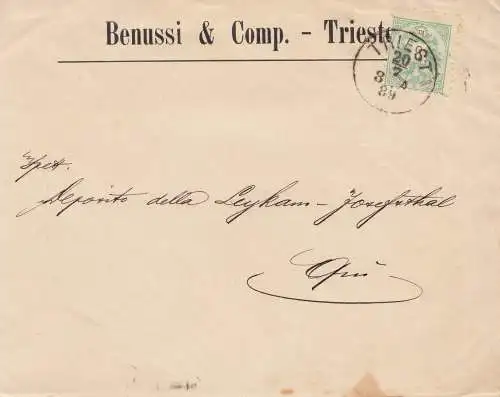 Benussi & Comp. - Trieste
TRIEST
20
7
8 A
89
Spett.
Deposito della Leykam-Josefsthal
Qui